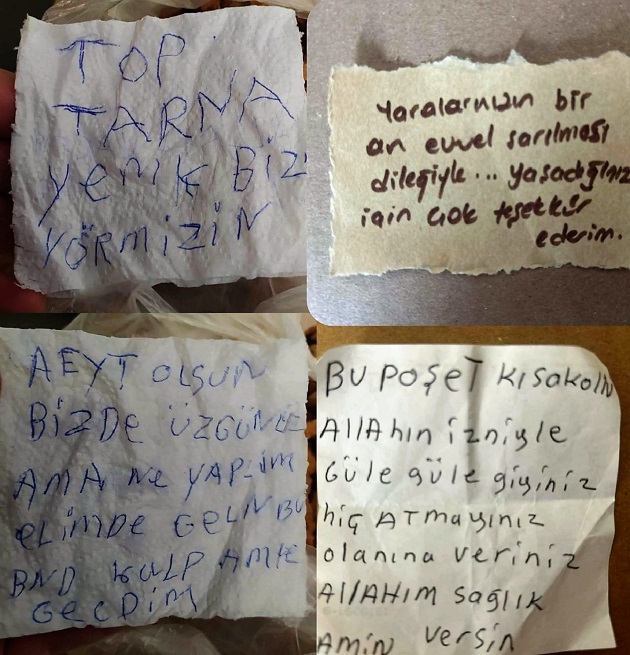 TOP
TARNA
yemik Bizi
YÖRMİZİN
Yaralarınızın bir
an evvel sarılması
dileğiyle... yaşadığınız
için çok teşekkür
ederim.
AEYT OLSUN
BİZDE ÜZGÜN
AMA Ne YAPLIM
eLİMDe GeLN BU
BND KALP AMLE
GeCDİM
BU POŞET KISAKOLlu
AllAhın izniyle
Güle güle giyiniz
hiç ATmayınız
olanına veriniz
AllAHIM sağlık
Amin versin